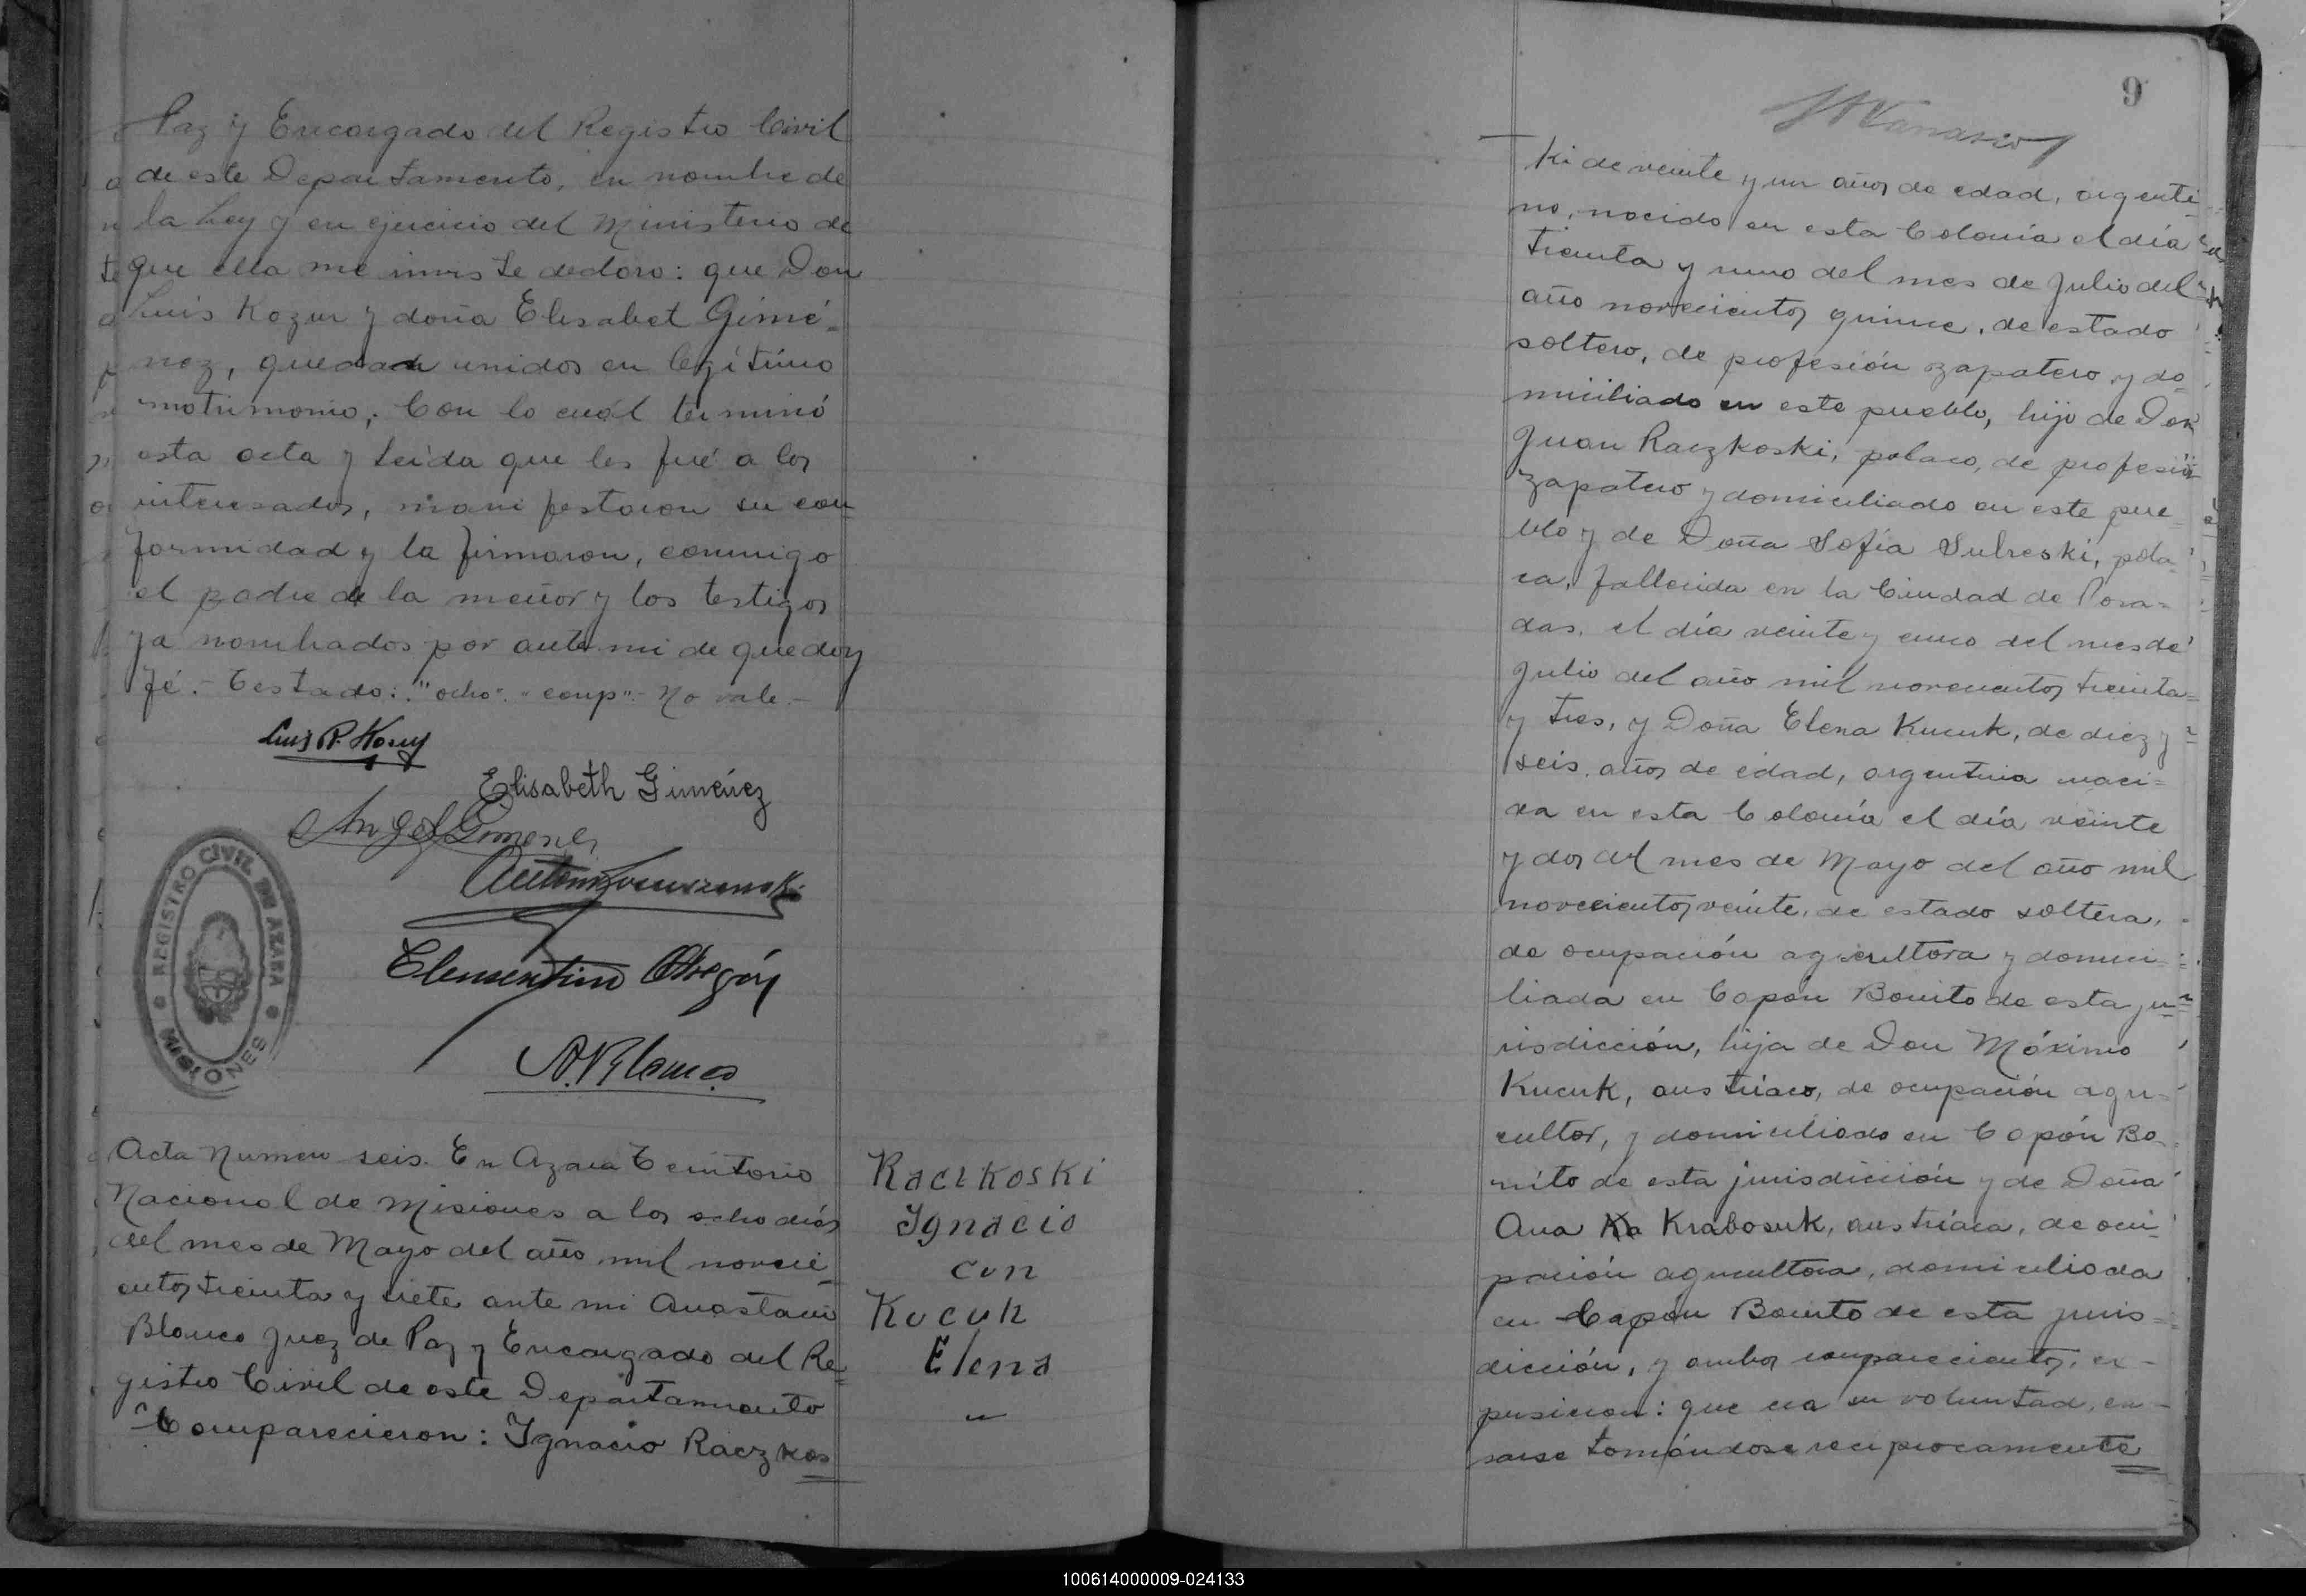 Paz y Encargado del Registro Civil
de este Departamento, en nombre de
la Ley y en ejercicio del Ministerio de
que ella me inviste declaro: que Don
Luis Kozur y doña Elisabet Gimé-
nez, quedan unidos en legítimo
matrimonio. Con lo cuál terminó
esta acta y leída que les fué a los
interesados, manifestaron su con-
formidad y la firmaron, conmigo
el padre de la menor y los testigos
ya nombrados por ante mi de que doy
fé.- Testado: "ocho". "comp". No vale.-
Luis P. Kozur
Elisabeth Giménez
Angel Gimenez
Clementino Obregón
A. Blanco
REGISTRO CIVIL DE AZARA
MISIONES
Acta Numero seis. En Azara Territorio
Nacional de Misiones a los ocho días
del mes de Mayo del año mil novecie-
entos treinta y siete ante mi Anastacio
Blanco Juez de Paz y Encargado del Re-
gistro Civil de este Departamento
Comparecieron: Ignacio Raczkos
Raczkoski
Ignacio
con
Kucuk
Elena
9
ki de veinte y un años de edad, argenti-
no, nacido en esta Colonia el día
treinta y uno del mes de Julio del
año novecientos quince, de estado
soltero, de profesión zapatero y do-
miciliado en este pueblo, hijo de Don
Juan Raczkoski, polaco, de profesión
zapatero y domiciliado en este pue-
blo y de Doña Sofía Sulreski, pola-
ca, fallecida en la Ciudad de Posa-
das, el día veinte y cinco del mes de
Julio del año mil novecientos treinta
y tres, y Doña Elena Kucuk, de diez y
seis años de edad, argentina naci-
da en esta Colonia el día veinte
y dos del mes de Mayo del año mil
novecientos veinte, de estado soltera,
de ocupación agricultora y domici-
liada en Capón Bonito de esta ju-
risdicción, hija de Don Máximo
Kucuk, austriaco, de ocupación agri-
cultor, y domiciliado en Capón Bo-
nito de esta jurisdicción y de Doña
Ana Ka Krabosuk, austríaca, de ocu-
pación agricultora, domiciliada
en Capón Bonito de esta juris-
dicción, y ambos comparecientes, ex-
pusieron: que era su voluntad, ca-
sarse tomándose reciprocamente
100614000009-024133